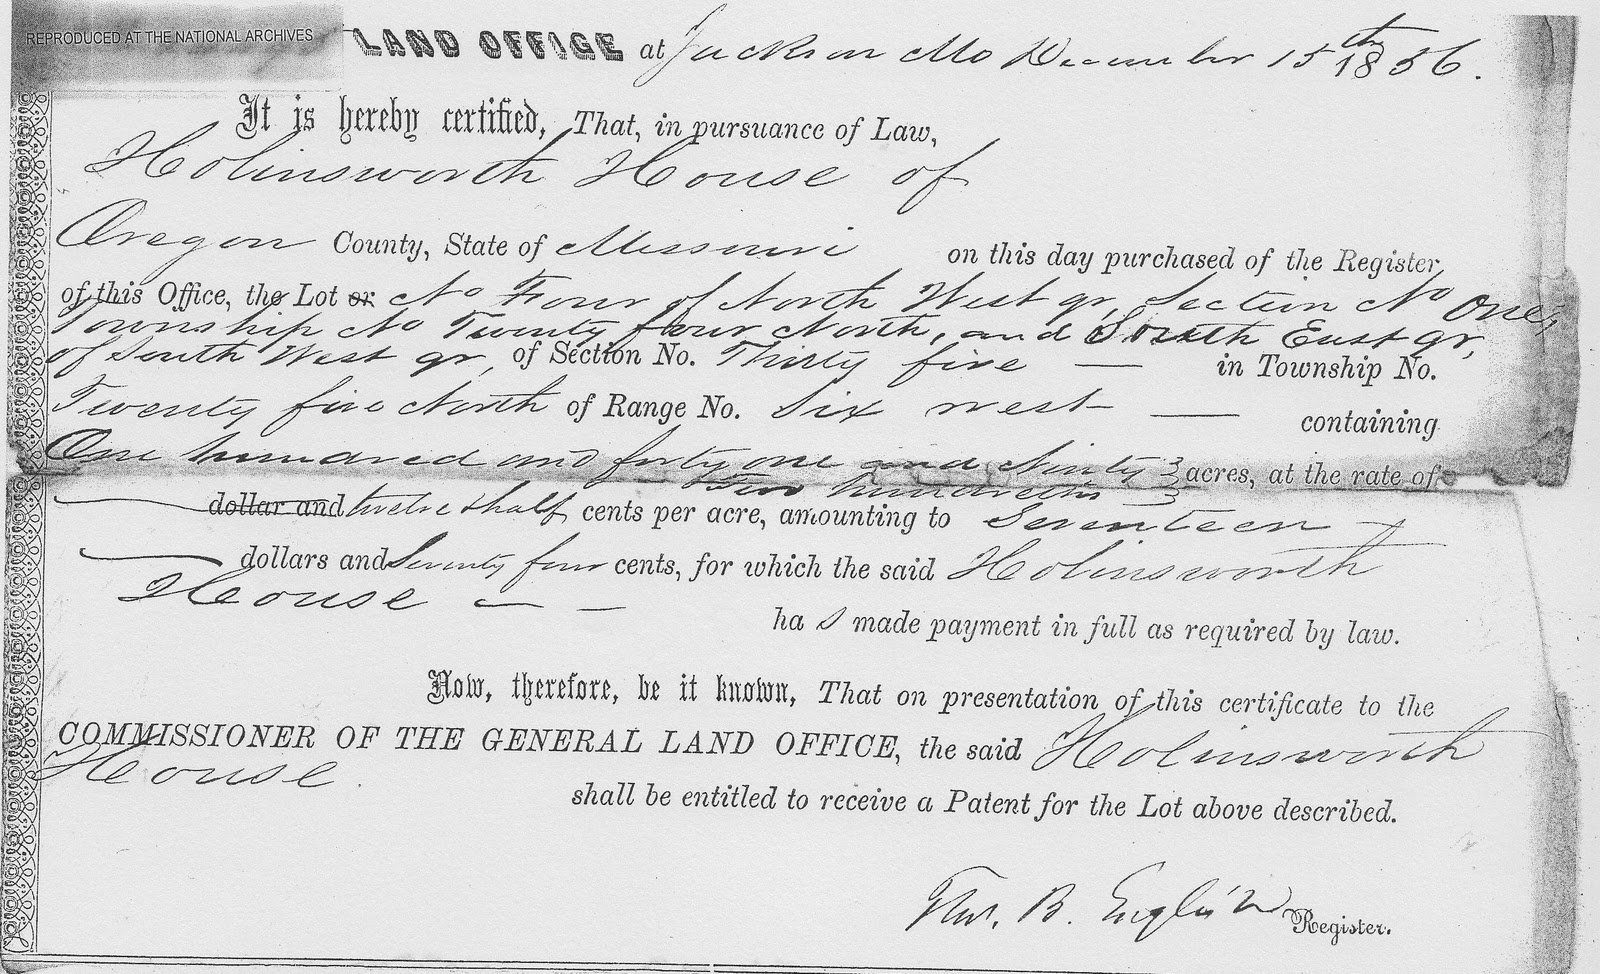 REPRODUCED AT THE NATIONAL ARCHIVES
LAND OFFICE at Jackson Mo December 15th 1856.
It is hereby certified, That, in pursuance of Law,
Holinsworth House of
Oregon County, State of Missouri on this day purchased of the Register
of this Office, the Lot or No Four of North West qr, Section No One,
Township No Twenty four North, and South East qr,
of South West qr, of Section No. Thirty five — in Township No.
Twenty five North of Range No. Six west — containing
One hundred and forty one and Ninty
Two hundreths acres, at the rate of
— dollar and twelve & half cents per acre, amounting to Seventeen
— dollars and Seventy four cents, for which the said Holinsworth
House — — ha s made payment in full as required by law.
Now, therefore, be it known, That on presentation of this certificate to the
COMMISSIONER OF THE GENERAL LAND OFFICE, the said Holinsworth
House. shall be entitled to receive a Patent for the Lot above described.
B. English Register.